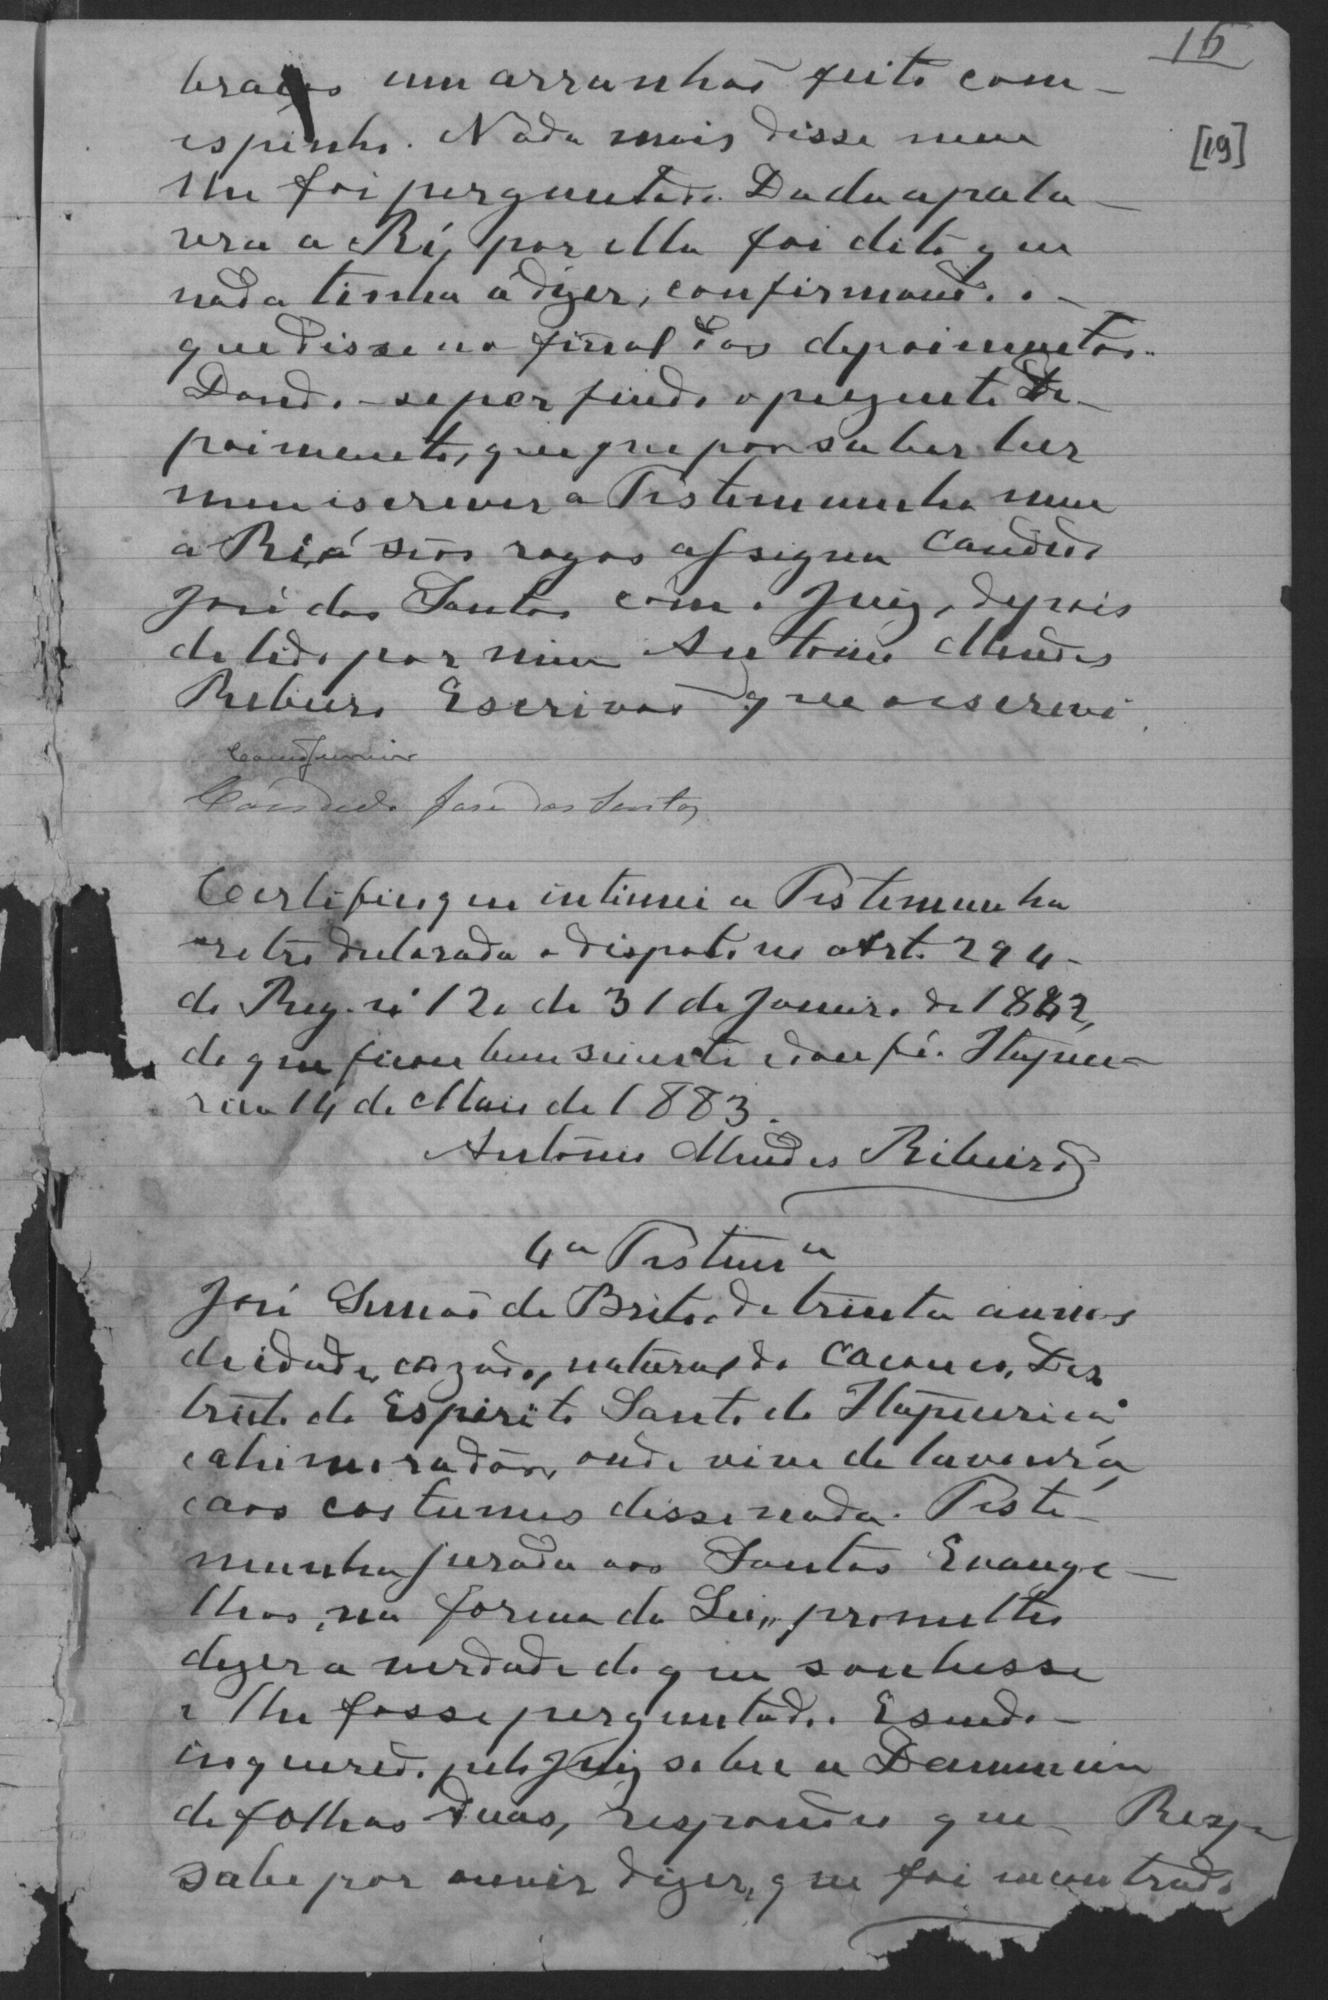 16
[19]
braços um arranhão feito com
espinho. Nada mais disse nem
lhe foi perguntado. Dada a pala-
vra a Ré, por ella foi dito que
nada tinha á dizer, confirmando o
que disse no final dos depoimentos.
Dando-se por findo o prezente De-
poimento, que que por saber ler
nem escrever a Testemunha nem
a Ré á seos rogos assigna Candido
José dos Santos com o Juiz, depois
de lido por mim Antonio Mendes
Ribeiro Escrivão que o escrevi
Candido José dos Santos
Certifico que intimei a Testemunha
retro declarada o disposto no Art. 294
do Reg. nº 120 de 31 de Janeiro de 1842,
do que ficou bem sciente e dou fé. Itapicu-
rú 14 de Maio de 1883.
Antonio Mendes Ribeiro
4ª Testemª
José Simão de Brito, de trinta annos
de idade, cazado, natural do Dis
tricto do Espirito Santo do Itapicurú
e ahi morador, onde vive de lavoura,
e aos costumes disse nada. Teste-
munha jurada aos Santos Evange-
lhos, na forma da Lei, prometteo
dizer a verdade do que soubesse
e lhe fosse perguntado. E sendo
inquerido pelo Juiz sobre a Denuncia
de folhas duas, respondeo que Resp
sabe por ouvir dizer, que foi encontrado